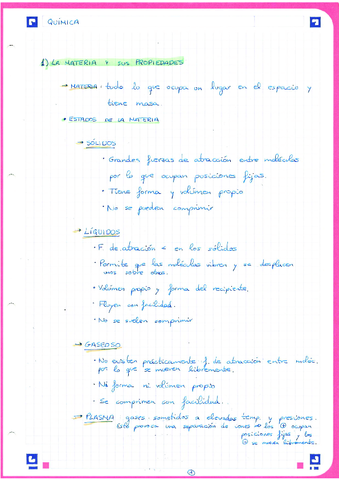 QUÍMICA
1) LA MATERIA Y SUS PROPIEDADES
→ MATERIA: todo lo que ocupa un lugar en el espacio y
tiene masa
→ ESTADOS DE LA MATERIA
→ SÓLIDOS
· Grandes fuerzas de atracción entre moléculas
por lo que ocupan posiciones fijas.
· Tiene forma y volúmen propio
· No se pueden comprimir
→ LÍQUIDOS
· F. de atracción < en los sólidos
· Permite que las moléculas vibren y se desplacen
unas sobre otras.
· Volúmen propio y forma del recipiente.
· Fluyen con facilidad.
· No se suelen comprimir
→ GASEOSO
· No existen prácticamente f. de atracción entre moléc.
por lo que se mueven libremente.
· Ni forma ni volúmen propio
· Se comprimen con facilidad.
→ PLASMA: gases sometidos a elevadas temp. y presiones.
Esto provoca una separación de iones → los ⊕ ocupan
posiciones fijas y los
⊖ se mueven libremente.
1